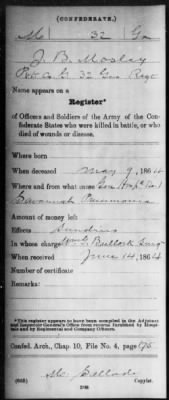 (CONFEDERATE.)
M 32 Ga
J. B. Mosley
Pvt Co G 32 Ga Regt
Name appears on a
Register*
of Officers and Soldiers of the Army of the Con-
federate States who were killed in battle, or who
died of wounds or disease.
Where born
When deceased May 9, 1864
Where and from what cause Gen Hosp No 1
Savannah Pneumonia
Amount of money left
Effects Sundries
In whose charge W. Bullock Surg
When received June 14, 1864
Number of certificate
Remarks:
*This register appears to have been compiled in the Adjutant
and Inspector General's Office from returns furnished by Hospi-
tals and by Regimental and Company Officers.
Confed. Arch., Chap. 10, File No. 4, page
(635)
Copyist.